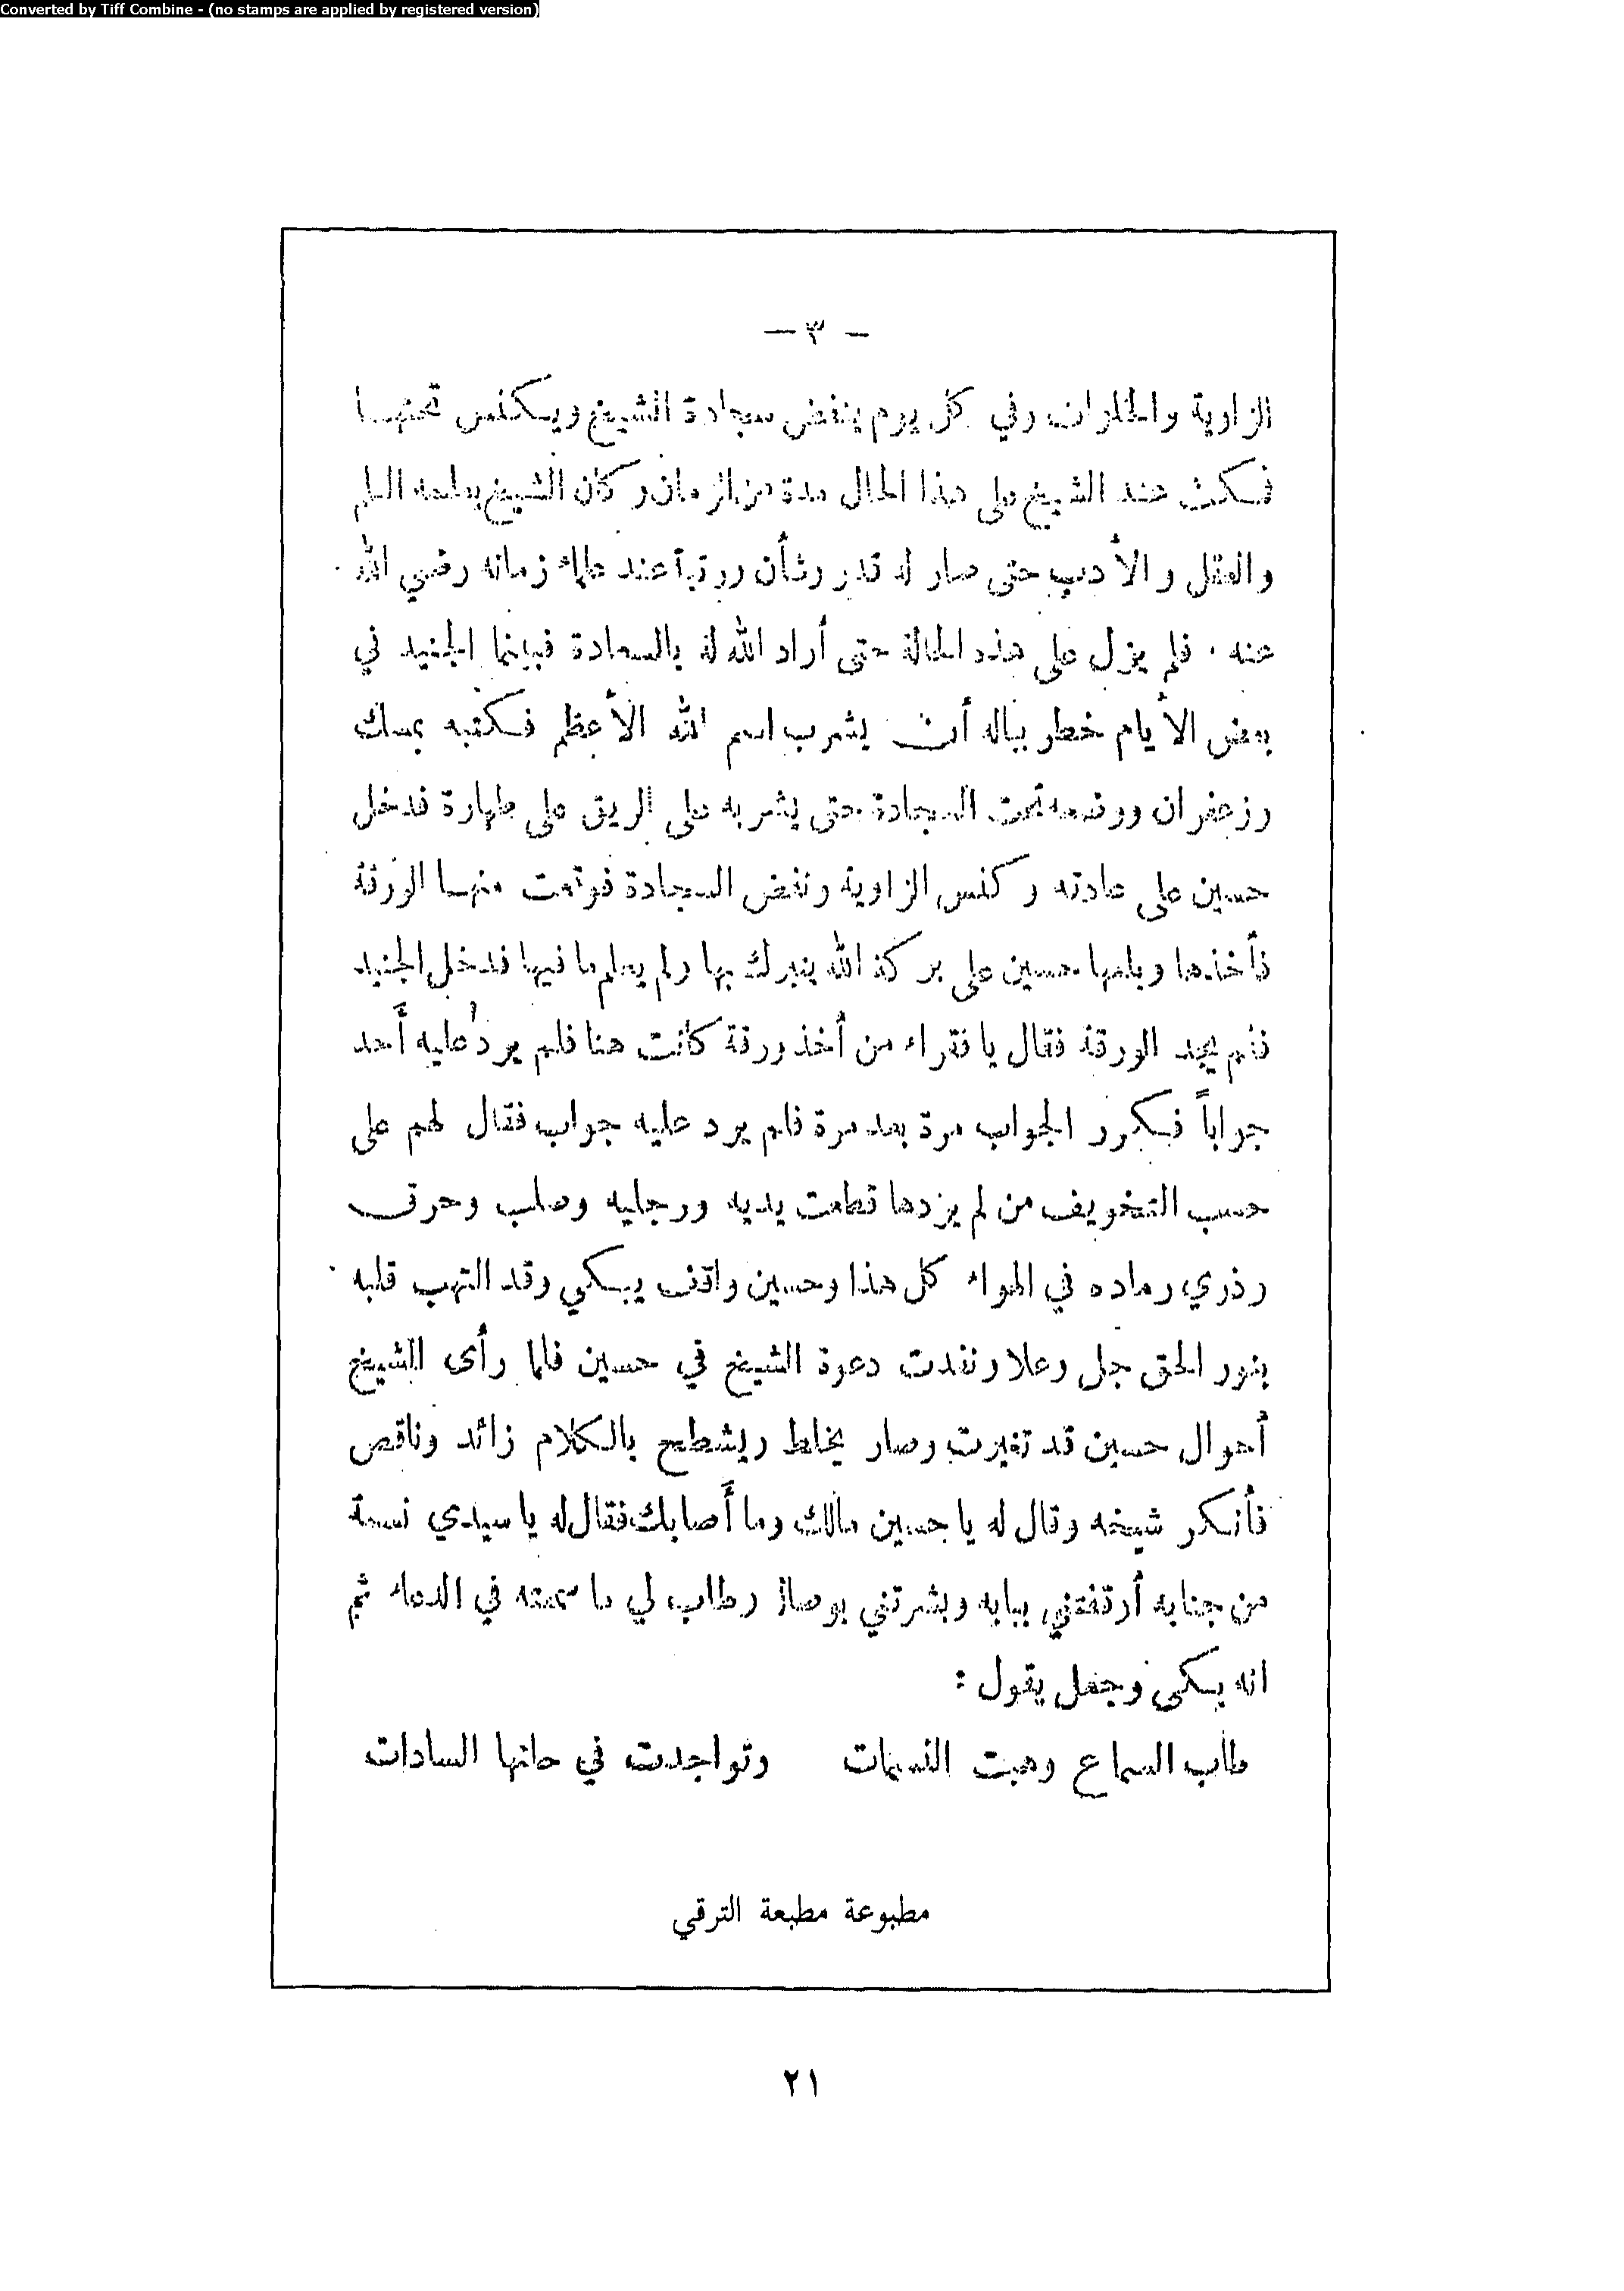 Converted by Tiff Combine - (no stamps are applied by registered version)
— ٣ —
الزاوية والخلوات وفي كل يوم ينفض سجادة الشيخ ويكنس تحتها
فمكث عند الشيخ على هذا الحال مدة من الزمان وكان الشيخ يعلمه العلم
والعقل والأدب حتى صار له قدر وشأن ورتبة عند علماء زمانه رضي الله
عنه . فلم يزل على هذه الحالة حتى أراد الله له بالسعادة فبينما الجنيد في
بعض الأيام خطر بباله أن يشرب اسم الله الأعظم فكتبه بمسك
وزعفران ووضعه تحت السجادة حتى يشربه على الريق على طهارة فدخل
حسين على عادته وكنس الزاوية ونفض السجادة فوقعت منها الورقة
فأخذها وبلعها حسين على بركة الله يتبرك بها ولم يعلم ما فيها فدخل الجنيد
فلم يجد الورقة فقال يا فقراء من أخذ ورقة كانت هنا فلم يردُ عليه أَحد
جواباً فكرر الجواب مرة بعد مرة فلم يرد عليه جواب فقال لهم على
حسب التخويف من لم يردها قطعت يديه ورجليه وصلب وحرق
وذري رماده في الهواء كل هذا وحسين واقف يبكي وقد التهب قلبه
بنور الحق جل وعلا ونفدت دعوة الشيخ في حسين فلما رأى الشيخ
أحوال حسين قد تغيرت وصار يخلط ويشطح بالكلام زائد وناقص
فأنكر شيخه وقال له يا حسين مالك وما أَصابك فقال له يا سيدي نسمة
من جنابه أوقفتني ببابه وبشرتني بوصاله وطاب لي ما سمعته في الدعاء ثم
انه بكى وجعل يقول :
طاب السماع وهبت النسمات وتواجدت في حانها السادات
مطبوعة مطبعة الترقي
٢١